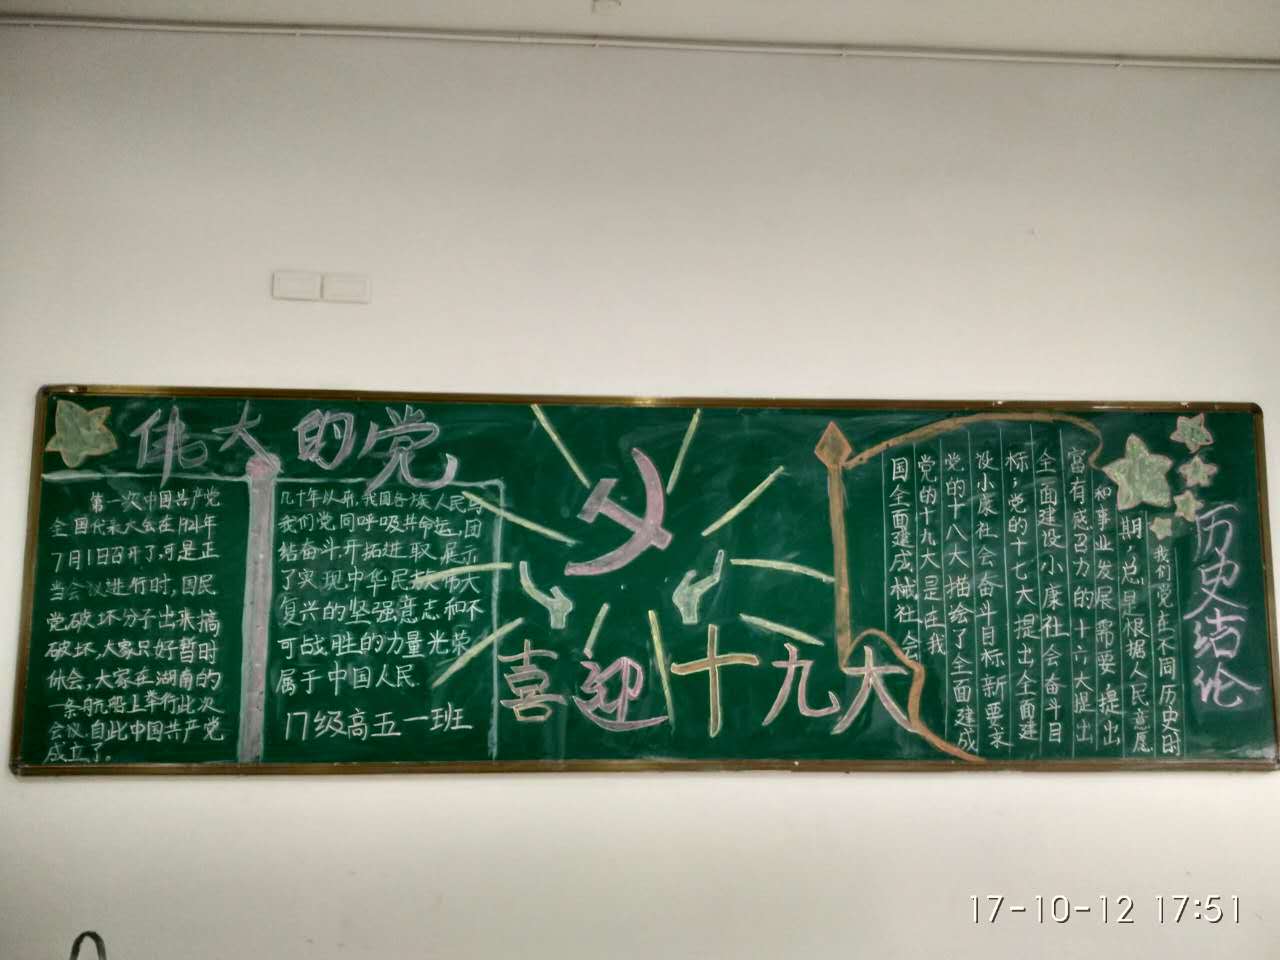 伟大的党
第一次中国共产党
全国代表大会在1921年
7月1日召开了,可是正
当会议进行时,国民
党破坏分子出来搞
破坏,大家只好暂时
休会,大家在湖南的
一条的船上举行此次
会议.自此中国共产党
成立了。
几十年以来,我国各族人民与
我们党同呼吸共命运,团
结奋斗,开拓进取,展示
了实现中华民族伟大
复兴的坚强意志和不
可战胜的力量光荣
属于中国人民.
17级高五一班
喜迎十九大
历史结论
我们党在不同历史时
期,总是根据人民意愿
和事业发展需要,提出
富有感召力的十六大提出
全面建设小康社会奋斗目
标;党的十七大提出全面建
设小康社会奋斗目标新要求
党的十八大描绘了全面建成
党的十九大是在我
国全面建成械社会
17-10-12 17:51